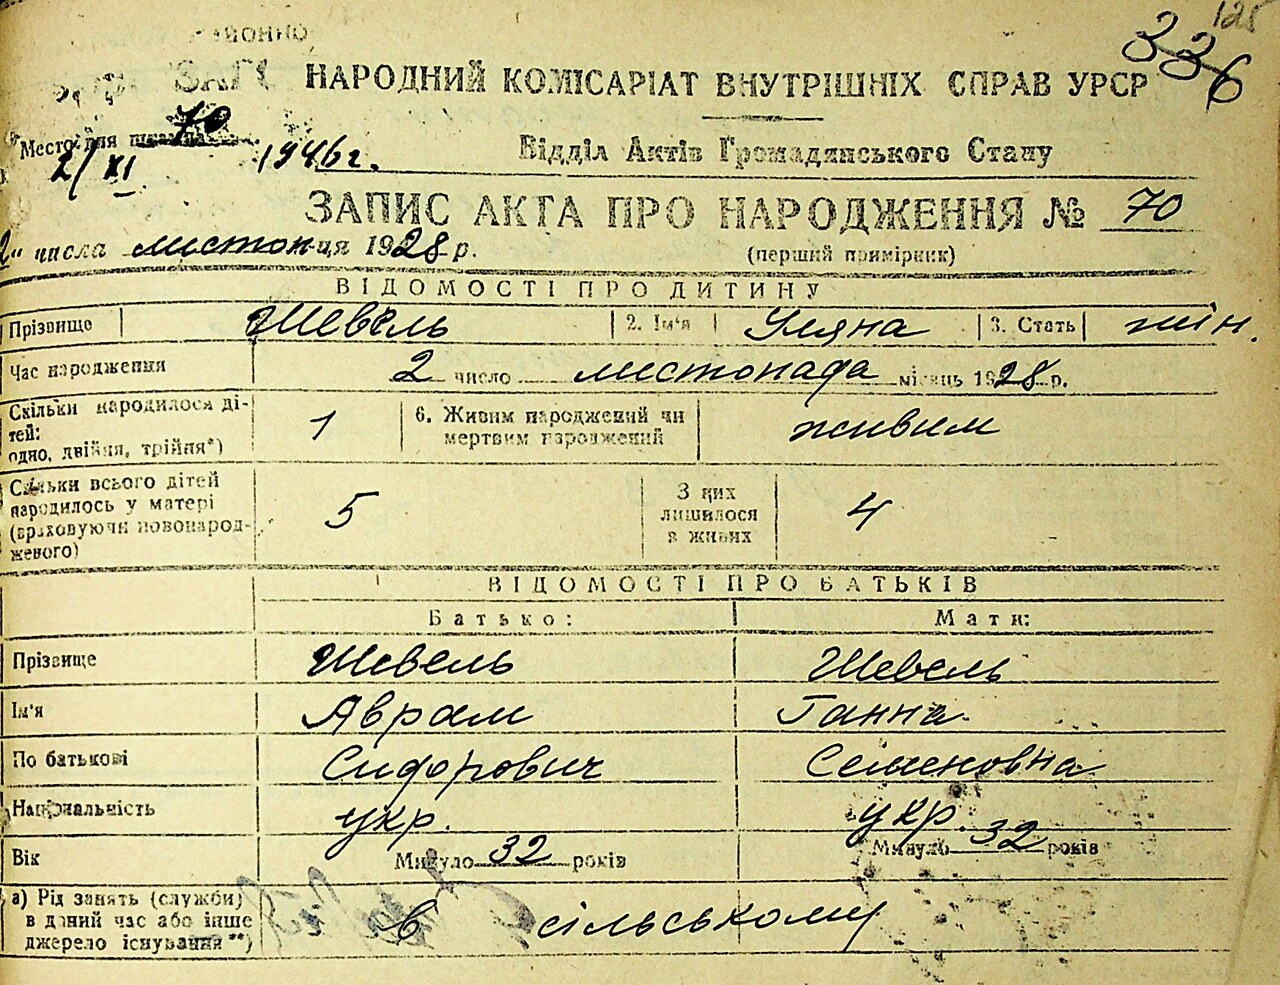 125
336
РАЙОННО
ЗАГС НАРОДНИЙ КОМІСАРІАТ ВНУТРІШНІХ СПРАВ УРСР
Место для штампа 70
2/XI 1946 г. Відділ Актів Громадянського Стану
ЗАПИС АКТА ПРО НАРОДЖЕННЯ № 70
2" числа листоп-ця 1928 р. (перший примірник)
ВІДОМОСТІ ПРО ДИТИНУ
Прізвище Шевель 2. Ім'я Уляна 3. Стать жін.
Час народження 2 число листопада місяць 1928 р.
Скільки народилося ді-
тей:
одно, двійня, трійня*) 1 6. Живим народжений чи
мертвим народжений живим
Скільки всього дітей
народилось у матері
(враховуючи новонарод-
женого) 5 З них
лишилося
в живих 4
ВІДОМОСТІ ПРО БАТЬКІВ
Батько: Мати:
Прізвище Шевель Шевель
Ім'я Аврам Ганна
По батькові Сидорович Семеновна
Національність укр. укр.
Вік Минуло 32 років Минуло 32 років
а) Рід занять (служби)
в даний час або інше
джерело існування**) в сільському